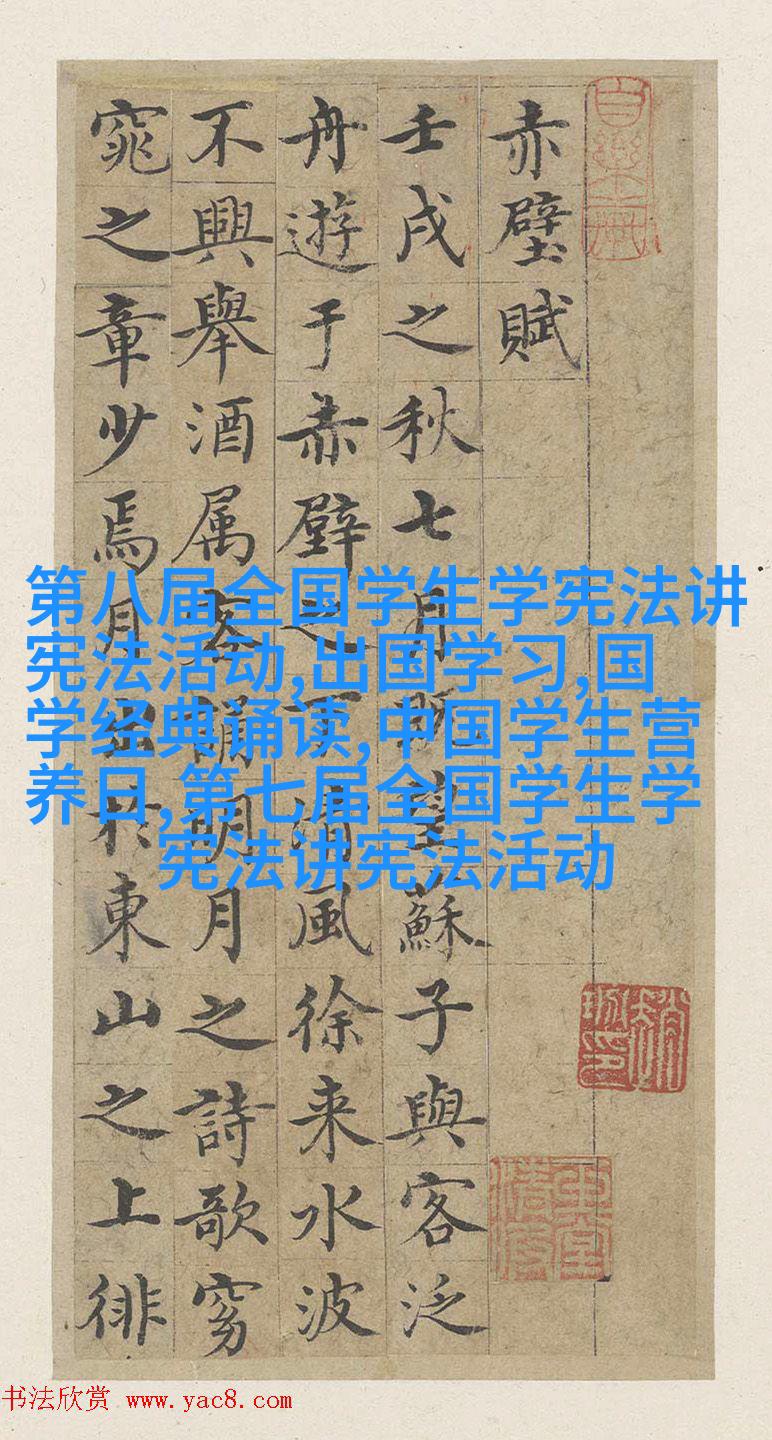 赤壁賦
壬戌之秋七月既望蘇子與客泛
舟遊于赤壁之下清風徐来水波
不興舉酒属客誦明月之詩歌窈
窕之章少焉月出於東山之上徘
第八届全国学生学宪法讲
宪法活动,出国学习,国
学经典诵读,中国学生营
养日,第七届全国学生学
宪法讲宪法活动
书法欣赏 www.yac8.com